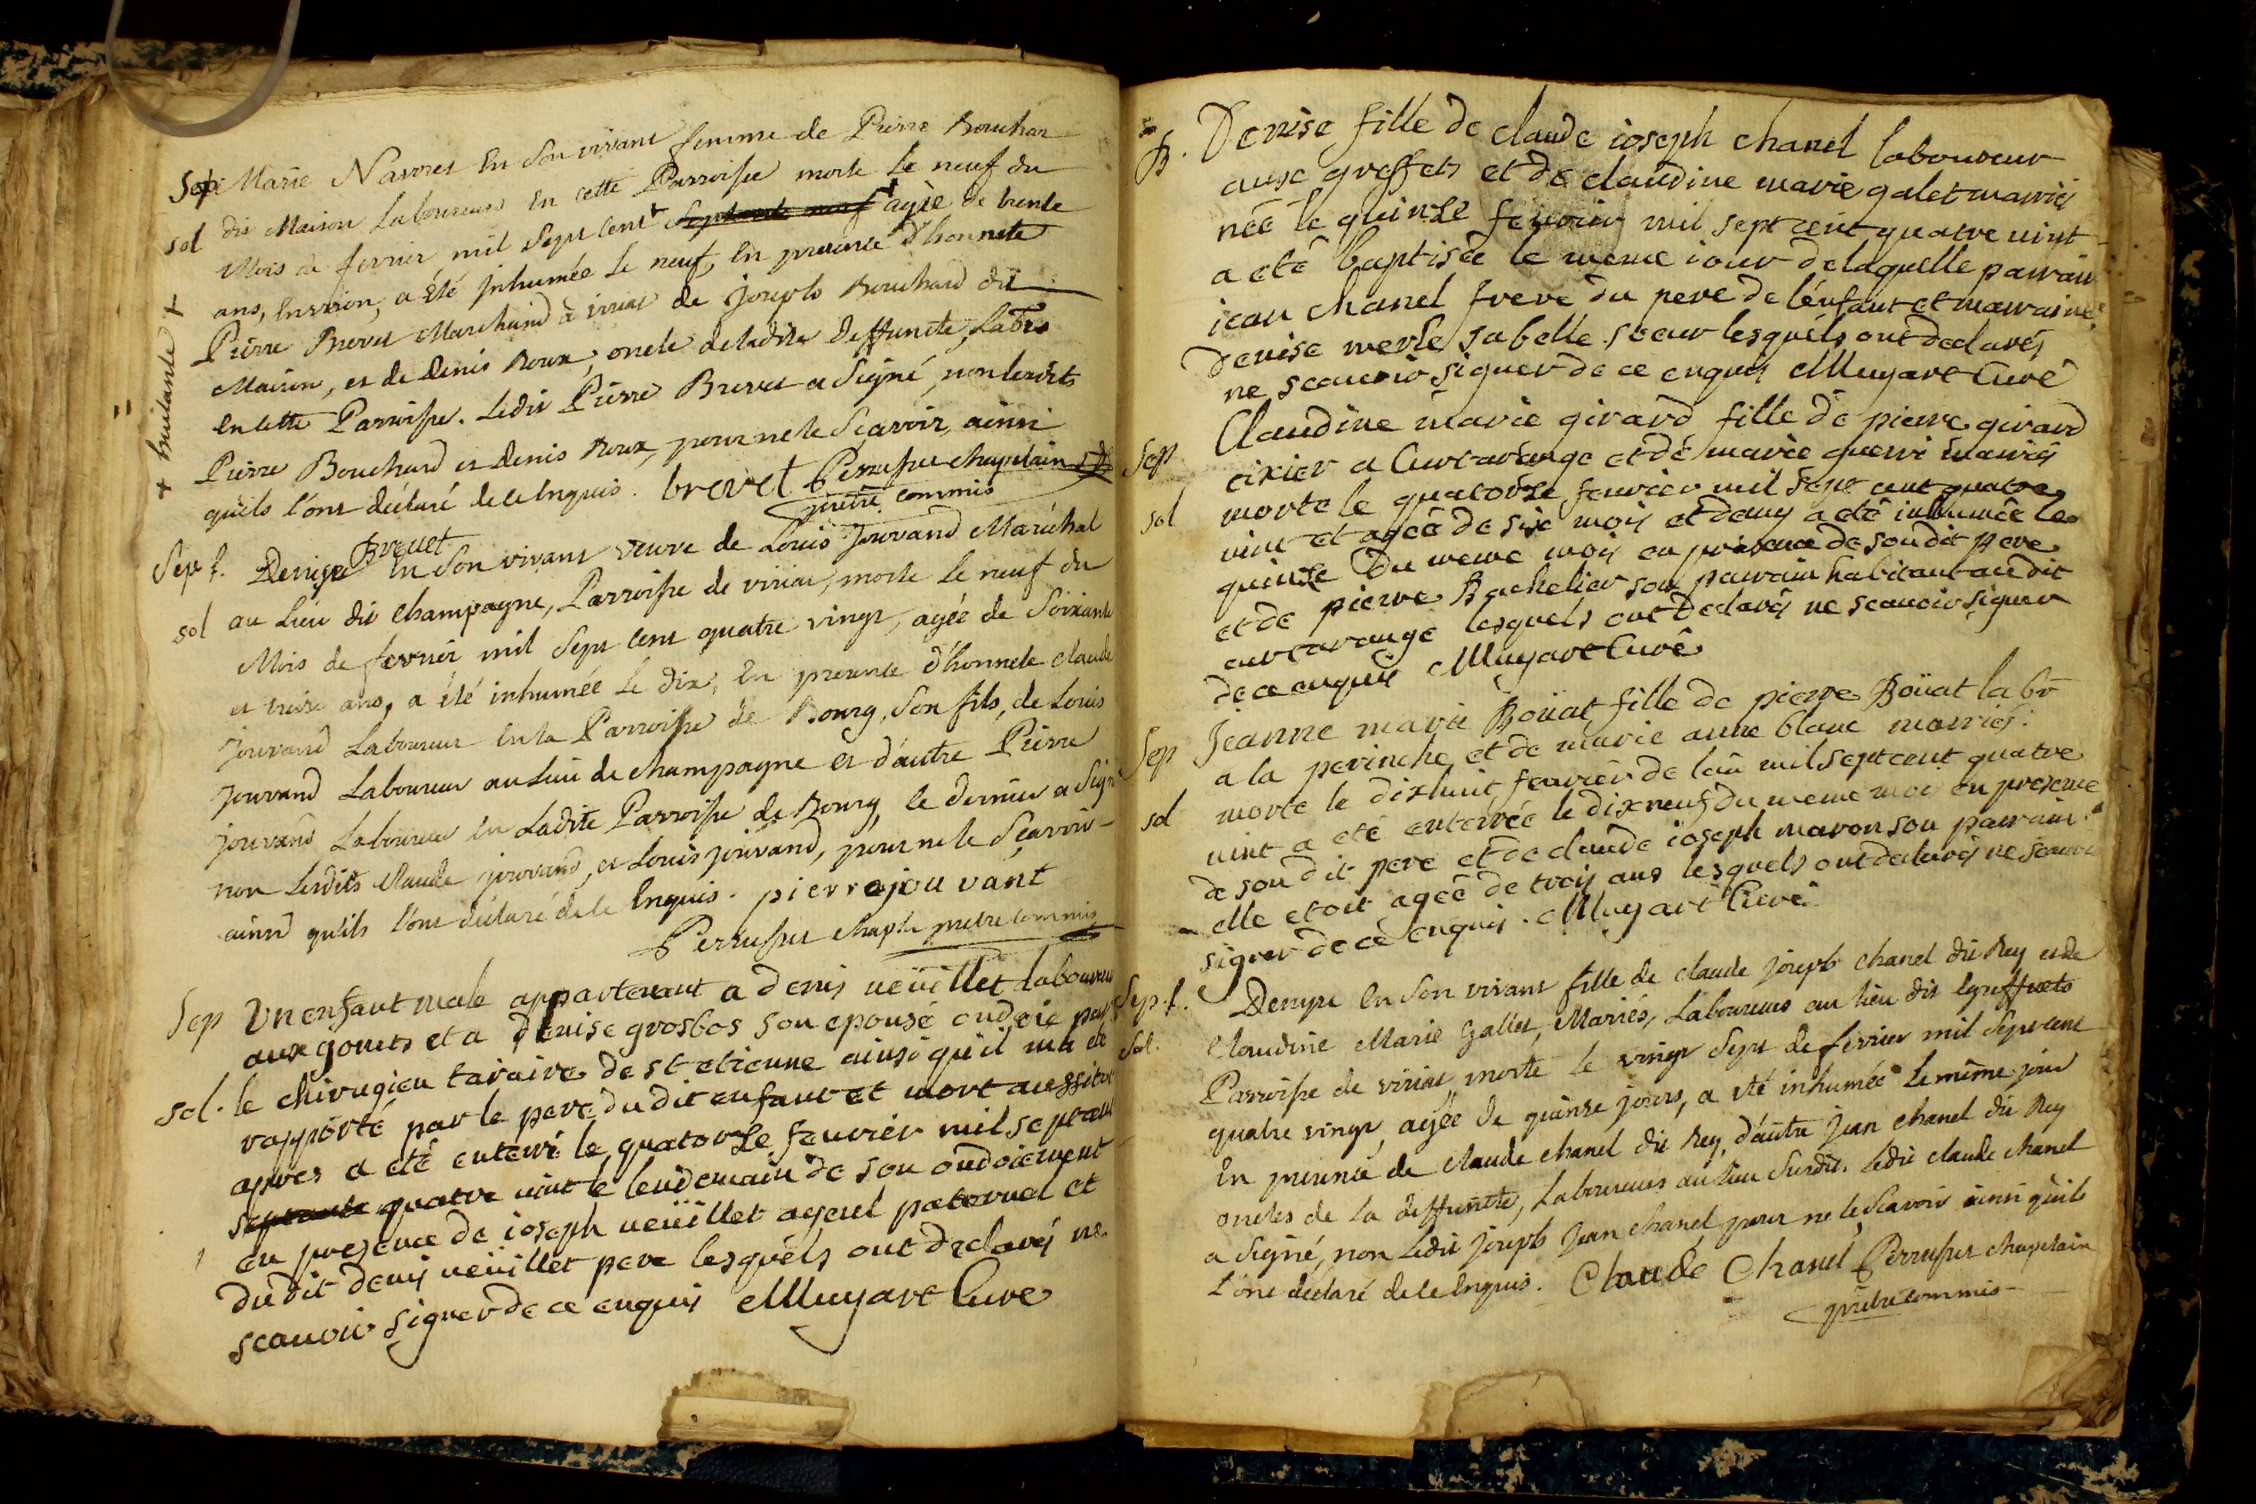 Sep Marie Navoret En Son vivant femme de Pierre Bouchar
sol dit Maison Laboureurs En cette Parroisse morte Le neuf du
Mois de fevrier mil Sept Cent + septante neuf agée de trente
ans, Environ, a été Inhumée Le neuf, En presence d'honnete
+ huitante +
Pierre Brevet Marchand à viriat de Joseph Bouchard dit
Maison, et de Denis Roux, oncle de ladite Deffuncte, Labrs
En cette Parroisse. Ledit Pierre Brevet a Signé, non lesdits
Pierre Bouchard et Denis Roux, pour ne le Scavoir, ainsi
quils l'ont déclaré de ce Enquis. brevet Perrusset chapelain
prêtre commis
Sep f. Denise Brevet En Son vivant veuve de Louis Jouvand Maréchal
sol au Lieu dit Champagne, Parroisse de viriat, morte Le neuf du
Mois de fevrier mil Sept Cent quatre vingt, agée de Soixante
et treize ans, a été inhumée Le dix, En presence d'honnete claude
Jouvand Laboureur En la Parroisse de Bourg, Son fils, de Louis
Jouvand Laboureur au Lieu de Champagne et d'autre Pierre
Jouvand Laboureur En Ladite Parroisse de Bourg, le dernier a Signé
non Lesdits Claude jouvand, et Louis jouvand, pour ne le Sçavoir
ainsi qu'ils l'ont déclaré de ce Enquis. pierre jouvant
Perrusset chapln prêtre commis
Sep Un enfant male appartenant a denis veüillet laboureur
aux gonets et a denise grosbos son epouse ondoié par
sol. le chirugien tavaire de st etienne ainsi qu'il m'a été
rapporté par le pere du dit enfant et mort aussitot
apres a eté enterré le quatorze feuvrier mil sept cent
septante quatre vint le lendemain de son ondoiement
en presence de joseph veüillet ayeul paternel et
du dit denis veüillet pere lesquels ont declarés ne
scauoir signer de ce enquis Muyart Curé
B. Denise fille de claude ioseph chanel laboureur
aux greffets et de claudine marie galet mariés
née le quinze feuvrier mil sept cent quatre vint
a eté baptisée le meme iour de laquelle parrain
iean chanel frere du pere de l'enfant et marraine
denise merle sa belle soeur lesquels ont declarés
ne scauoir signer de ce enquis Muyart Curé
Sep Claudine marie girard fille de pierre girard
tixier a Curtarange et de marie guerri mariés
sol morte le quatorze feuvrier mil sept cent quatre
vint et agée de six mois et demy a eté inhumée le
quinze du meme mois en presence de son dit pere
et de pierre Bachelier son parrain habitant au dit
curtarange lesquels ont declarés ne scauoir signer
de ce enquis Muyart Curé
Sep Jeanne marie Boüat fille de pierre Boüat labr
a la pervinche et de marie anne blanc mariés
sol morte le dixhuit feuvrier de l'an mil sept cent quatre
vint a eté enterrée le dix neuf du meme moi en presence
de son dit pere et de claude ioseph maron son parrain
elle etoit agée de trois ans lesquels ont declarés ne scauoir
signer de ce enquis. Muyart Curé
Sep. f. Denyse En Son vivant fille de claude joseph chanel dit Rey et de
Sol. Claudine Marie Gallet, Mariés, Laboureurs au lieu dit Egreffets
Parroisse de viriat morte le vingt Sept de fevrier mil Sept cent
quatre vingt, agée de quinze jours, a été inhumée Le même jour
En presence de claude chanel dit Rey, d'autre Jean chanel dit Rey
oncles de la deffuncte, Laboureurs au lieu Susdit. Ledit claude chanel
a Signé, non Ledit joseph Jean chanel pour ne le Scavoir ainsi qu'ils
l'ont déclaré de ce Enquis. Claude Chanel Perrusset chapelain
prêtre commis